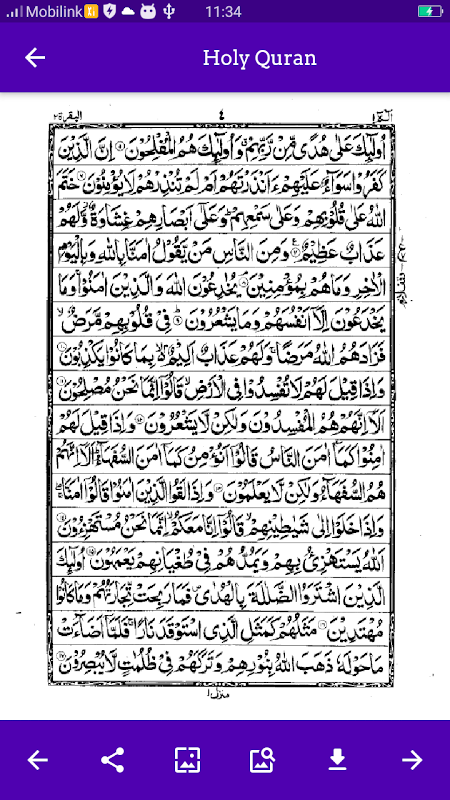 Mobilink 11:34
Holy Quran
الٓمّٓ ١ ٤ البقرة ٢
اُولٰٓئِكَ عَلٰى هُدًى مِّنْ رَّبِّهِمْ ۗ وَاُولٰٓئِكَ هُمُ الْمُفْلِحُوْنَ ۝٥ اِنَّ الَّذِيْنَ
كَفَرُوْا سَوَآءٌ عَلَيْهِمْ ءَاَنْذَرْتَهُمْ اَمْ لَمْ تُنْذِرْهُمْ لَا يُؤْمِنُوْنَ ۝٦ خَتَمَ
اللّٰهُ عَلٰى قُلُوْبِهِمْ وَعَلٰى سَمْعِهِمْ ۗ وَعَلٰٓى اَبْصَارِهِمْ غِشَاوَةٌ ۖ وَّلَهُمْ
عَذَابٌ عَظِيْمٌ ۝٧ وَمِنَ النَّاسِ مَنْ يَّقُوْلُ اٰمَنَّا بِاللّٰهِ وَبِالْيَوْمِ
الْاٰخِرِ وَمَا هُمْ بِمُؤْمِنِيْنَ ۝٨ يُخٰدِعُوْنَ اللّٰهَ وَالَّذِيْنَ اٰمَنُوْا ۚ وَمَا
يَخْدَعُوْنَ اِلَّآ اَنْفُسَهُمْ وَمَا يَشْعُرُوْنَ ۝٩ فِيْ قُلُوْبِهِمْ مَّرَضٌ ۙ
فَزَادَهُمُ اللّٰهُ مَرَضًا ۚ وَلَهُمْ عَذَابٌ اَلِيْمٌ ۢ ۙ بِمَا كَانُوْا يَكْذِبُوْنَ ۝١٠
وَاِذَا قِيْلَ لَهُمْ لَا تُفْسِدُوْا فِى الْاَرْضِ ۙ قَالُوْٓا اِنَّمَا نَحْنُ مُصْلِحُوْنَ ۝١١
اَلَآ اِنَّهُمْ هُمُ الْمُفْسِدُوْنَ وَلٰكِنْ لَّا يَشْعُرُوْنَ ۝١٢ وَاِذَا قِيْلَ لَهُمْ
اٰمِنُوْا كَمَآ اٰمَنَ النَّاسُ قَالُوْٓا اَنُؤْمِنُ كَمَآ اٰمَنَ السُّفَهَآءُ ۗ اَلَآ اِنَّهُمْ
هُمُ السُّفَهَآءُ وَلٰكِنْ لَّا يَعْلَمُوْنَ ۝١٣ وَاِذَا لَقُوا الَّذِيْنَ اٰمَنُوْا قَالُوْٓا اٰمَنَّا ۖ
وَاِذَا خَلَوْا اِلٰى شَيٰطِيْنِهِمْ ۙ قَالُوْٓا اِنَّا مَعَكُمْ ۙ اِنَّمَا نَحْنُ مُسْتَهْزِءُوْنَ ۝١٤
اَللّٰهُ يَسْتَهْزِئُ بِهِمْ وَيَمُدُّهُمْ فِيْ طُغْيَانِهِمْ يَعْمَهُوْنَ ۝١٥ اُولٰٓئِكَ
الَّذِيْنَ اشْتَرَوُا الضَّلٰلَةَ بِالْهُدٰى ۖ فَمَا رَبِحَتْ تِّجَارَتُهُمْ وَمَا كَانُوْا
مُهْتَدِيْنَ ۝١٦ مَثَلُهُمْ كَمَثَلِ الَّذِى اسْتَوْقَدَ نَارًا ۚ فَلَمَّآ اَضَآءَتْ
مَا حَوْلَهٗ ذَهَبَ اللّٰهُ بِنُوْرِهِمْ وَتَرَكَهُمْ فِيْ ظُلُمٰتٍ لَّا يُبْصِرُوْنَ ۝١٧
منزل ١